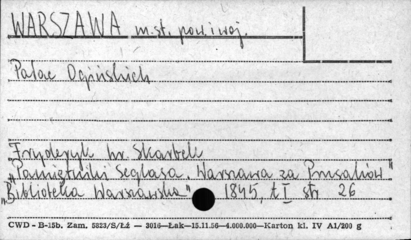 WARSZAWA m.st. pow. i woj.
Pałac Ogińskich
Fryderyk hr. Skarbek
"Pamiętniki Seglasa. Warszawa za Prusaków"
"Biblioteka Warszawska" 1845, t I str. 26
CWD - B-15b. Zam. 5823/S/Łż — 3016—Łak—15.11.56—4.000.000—Karton kl. IV A1/200 g